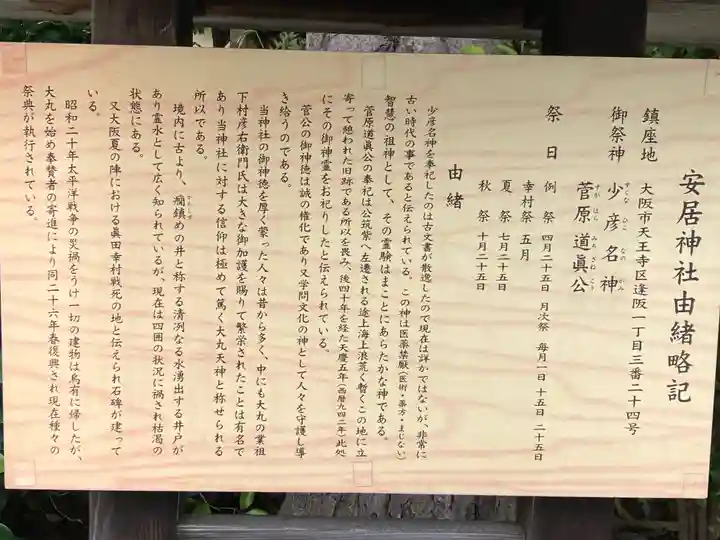 安居神社由緒略記
鎮座地 大阪市天王寺区逢阪一丁目三番二十四号
御祭神 少彦名神
すくな ひこ なの かみ
菅原道眞公
すが はら みち ざね こう
祭日 例祭 四月二十五日 月次祭 毎月一日 十五日 二十五日
幸村祭 五月
夏祭 七月二十五日
秋祭 十月二十五日
由緒
少彦名神を奉祀したのは古文書が散逸したので現在は詳かではないが、非常に
古い時代の事であると伝えられている。この神は医薬禁厭(医術・薬方・まじない)
智慧の祖神として、その霊験はまことにあらたかな神である。
菅原道眞公の奉祀は公筑紫へ左遷される途上海上浪荒く暫くこの地に立
寄って憩われた旧跡である所以を畏み、後四十年を経た天慶五年(西暦九四二年)此処
にその御神霊をお祀りしたと伝えられている。
菅公の御神徳は誠の権化であり又学問文化の神として人々を守護し導
き給うのである。
当神社の御神徳を厚く蒙った人々は昔から多く、中にも大丸の業祖
下村彦右衛門氏は大きな御加護を賜りて繁栄されたことは有名で
あり当神社に対する信仰は極めて篤く大丸天神と称せられる
所以である。
境内に古より、癇鎮めの井と称する清冽なる水湧出する井戸が
かんしずめ
あり霊水として広く知られているが、現在は四囲の状況に禍され枯渇の
状態にある。
又大阪夏の陣における眞田幸村戦死の地と伝えられ石碑が建って
いる。
昭和二十年太平洋戦争の災禍をうけ一切の建物は烏有に帰したが、
大丸を始め奉賛者の寄進により同二十六年春復興され現在種々の
祭典が執行されている。